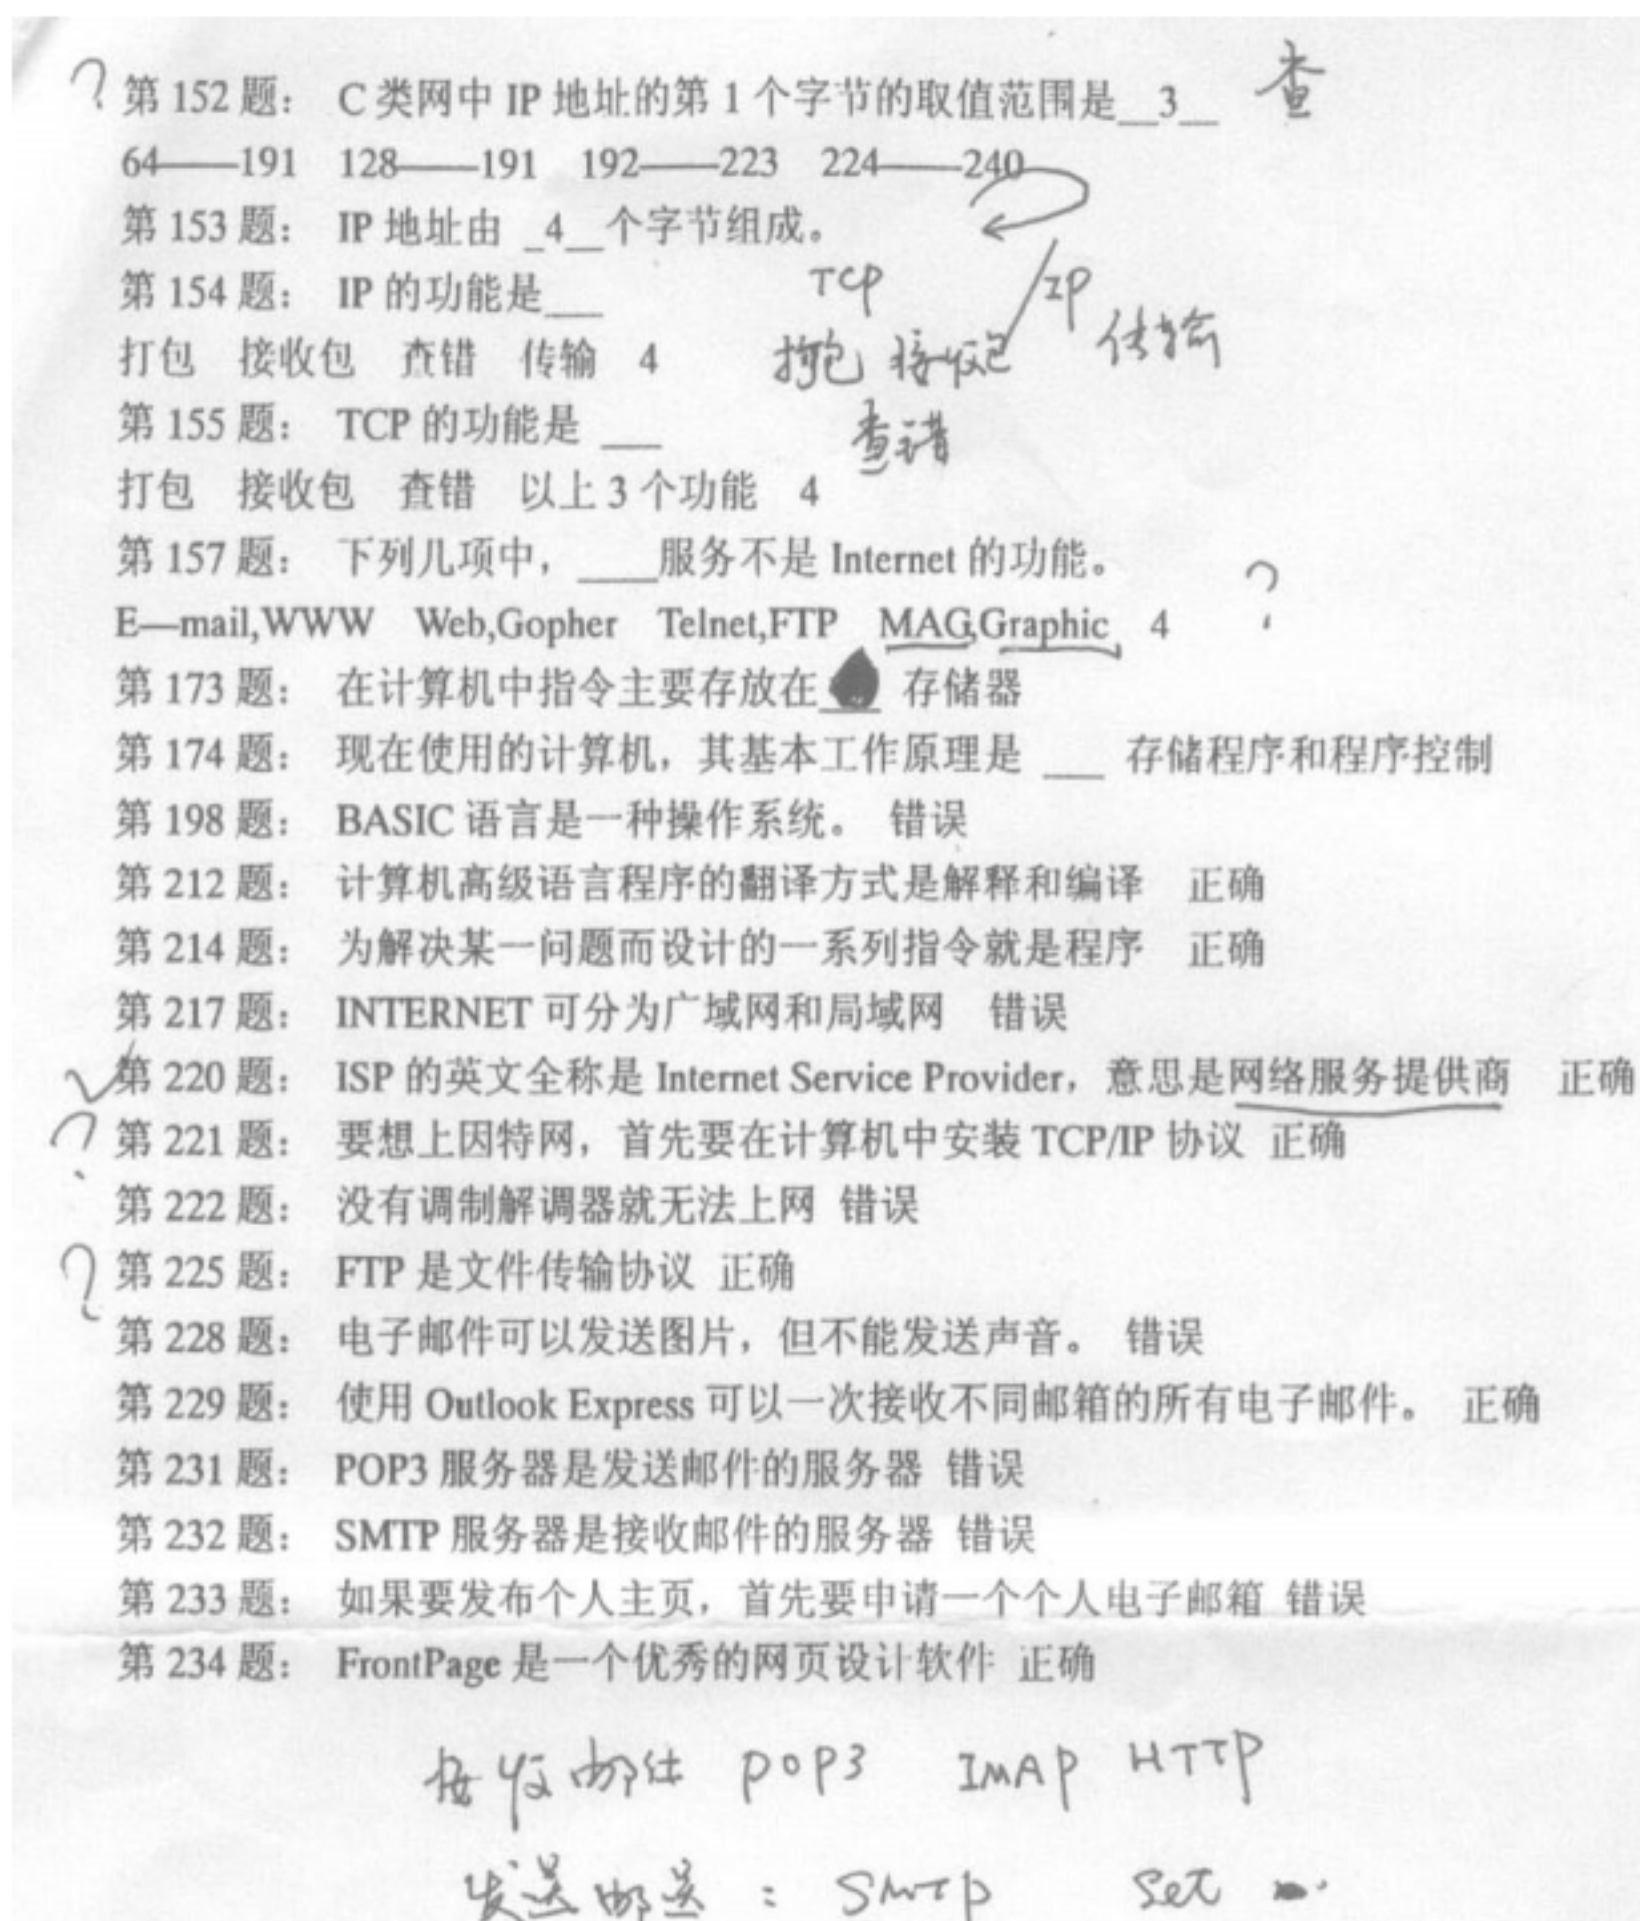 ? 第 152 题： C 类网中 IP 地址的第 1 个字节的取值范围是__3__ 查
64——191 128——191 192——223 224——240
第 153 题： IP 地址由 _4__个字节组成。
第 154 题： IP 的功能是___ TCP /IP
打包 接收包 查错 传输 4 打包 接收包 传输
第 155 题： TCP 的功能是 ___ 查错
打包 接收包 查错 以上 3 个功能 4
第 157 题： 下列几项中，____服务不是 Internet 的功能。
E—mail,WWW Web,Gopher Telnet,FTP MAG,Graphic 4 ?
第 173 题： 在计算机中指令主要存放在___ 存储器
第 174 题： 现在使用的计算机，其基本工作原理是 ___ 存储程序和程序控制
第 198 题： BASIC 语言是一种操作系统。 错误
第 212 题： 计算机高级语言程序的翻译方式是解释和编译 正确
第 214 题： 为解决某一问题而设计的一系列指令就是程序 正确
第 217 题： INTERNET 可分为广域网和局域网 错误
第 220 题： ISP 的英文全称是 Internet Service Provider，意思是网络服务提供商 正确
? 第 221 题： 要想上因特网，首先要在计算机中安装 TCP/IP 协议 正确
第 222 题： 没有调制解调器就无法上网 错误
? 第 225 题： FTP 是文件传输协议 正确
第 228 题： 电子邮件可以发送图片，但不能发送声音。 错误
第 229 题： 使用 Outlook Express 可以一次接收不同邮箱的所有电子邮件。 正确
第 231 题： POP3 服务器是发送邮件的服务器 错误
第 232 题： SMTP 服务器是接收邮件的服务器 错误
第 233 题： 如果要发布个人主页，首先要申请一个个人电子邮箱 错误
第 234 题： FrontPage 是一个优秀的网页设计软件 正确
接收邮件 POP3 IMAP HTTP
发送邮送： SMTP Set